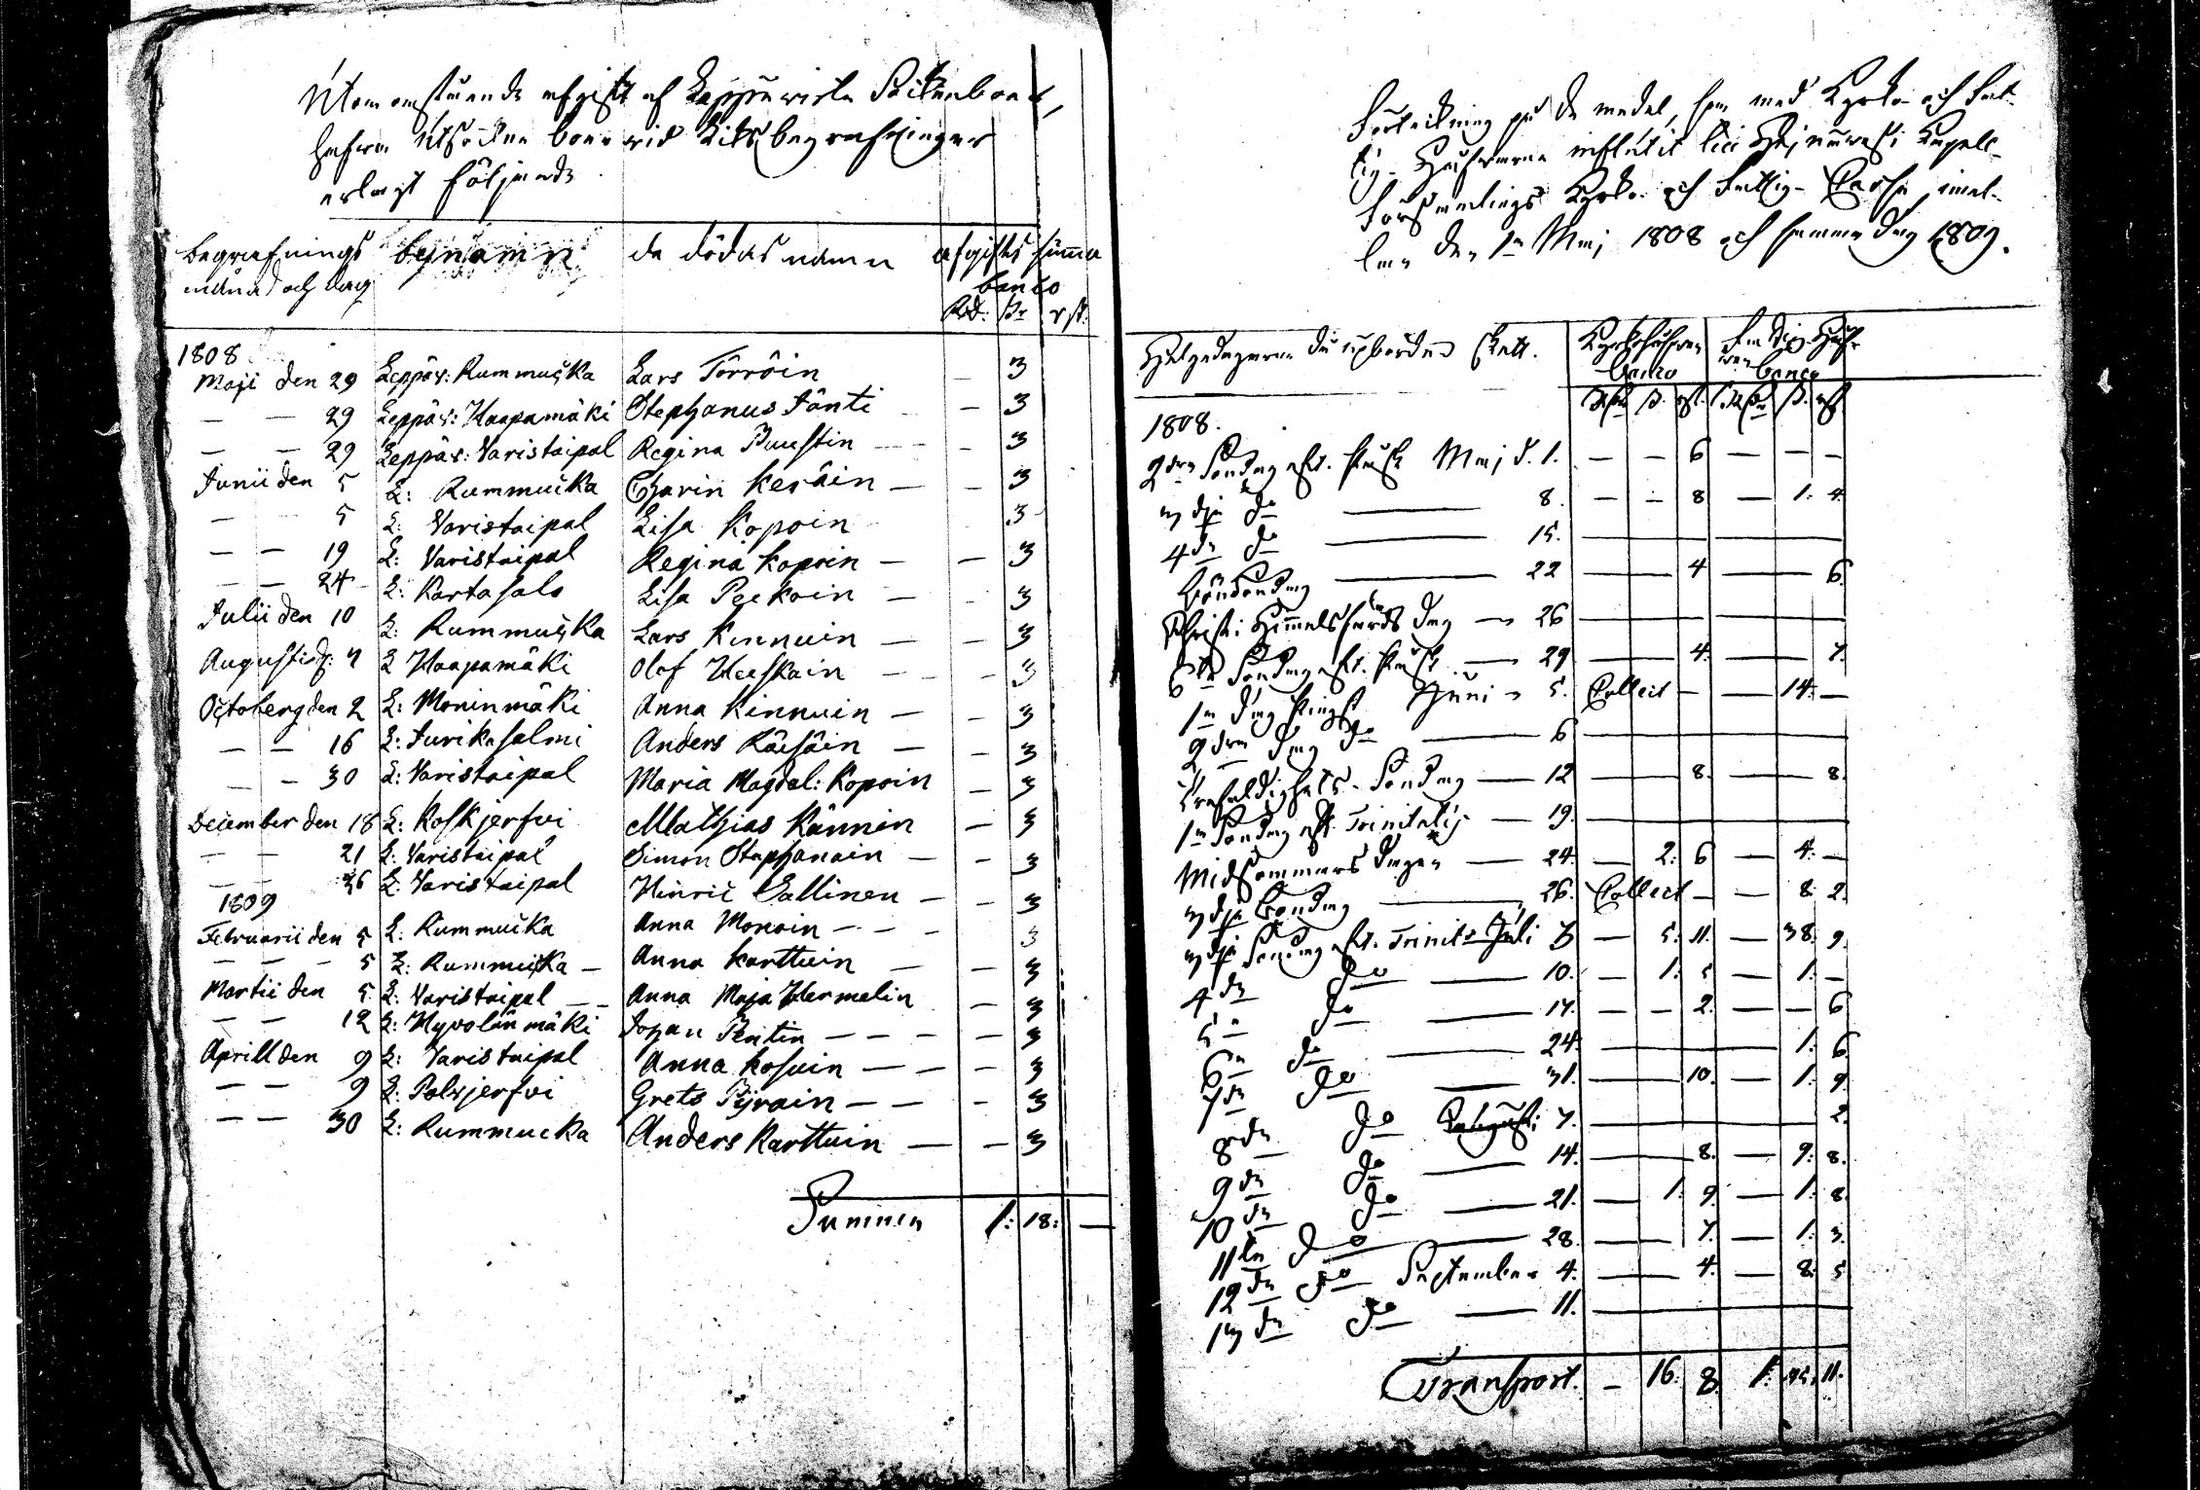 Utom omstående afgift af Leppävirta Sockneboer,
hafwa Utsockne boer wid Liks begrafningar
erlagt följande
begrafnings bynamn de dödas namn afgifts summa
månad och dag banco
Rd: sk: rst:
1808
Maji den 29 Leppäv: Rummucka Lars Törröin — 3
— — 29 Leppäv: Haapamäki Stephanus Jänti — — 3
— — 29 Leppäv: Varistaipal Regina Puustin — — 3
Junii den 5 L: Rummucka Charin Keräin — — 3
— 5 L: Varistaipal Lisa Kopoin 3
— — 19 L: Varistaipal Regina Kopoin — — 3
— — 24 L: Kartasalo Lisa Peckoin — — 3
Julii den 10 L: Rummucka Lars Kinnuin — — 3
Augusti d: 7 L Haapamäki Olof Heiskain — — 3
October den 2 L: Moninmäki Anna Kinnuin — — 3
— — 16 L: Jurikasalmi Anders Räisäin — — 3
— — 30 L: Varistaipal Maria Magdal: Kopoin — 3
December den 18 L: Koskjerfvi Mathias Kännin — 3
— — 21 L: Varistaipal Simon Stephanain — — 3
— — 26 L: Varistaipal Hinric Sallinen — — 3
1809
Februarii den 5 L: Rummucka Anna Monoin — — — 3
— — — 5 L: Rummucka — Anna Karttuin — — 3
Martii den 5 L: Varistaipal — — Anna Maja Hermelin — 3
— — 12 L: Hyvolän mäki Johan Pentin — — — — 3
Aprill den 9 L: Varistaipal Anna Kosuin — — — 3
— — 9 L: Polvjerfvi Greta Pyrain — — — 3
— — 30 L: Rummucka Anders Karttuin — — 3
Summa 1: 18: —
Förteckning på de medel, som med Kyrko- och Fat-
tig- Håfwarne influtit till Kapell-
församlings Kyrko- och Fattig- Cassa imel-
lan den 1a Maj 1808 och samma dag 1809.
Helgedagarne då upbörden skett. Kyrkohåfwen Fattig Håf-
Banco wen Banco
1808.
2dra Söndag eft. Påsk Maj d. 1. — — 6 — — —
3dje do — 8. — — 8 — 1: 4.
4de do — 15. —
Böndag — 22 — 4 — 6.
Christi Himmelsfärds Dag — 26 —
6te Söndag eft. Påsk — 29 — 4. — 7.
1a dag Pingst Juni — 5. Collect — — 14: —
2dra dag do — 6 —
Trefaldighets- Söndag — 12 — 8. — 8.
1a Söndag eft Trinitatis — 19. —
Midsommars dagen — 24. — 2: 6 — 4. —
3dje Böndag — 26. Collect — — 8: 2.
3dje Söndag eft. Trinit: Juli 3 — 5: 11. — 38: 9.
4de do — 10. — 1: 5 — 1: —
5te do — 17. — — 2. — — 6
6te do — 24. — 1: 6
7de do — 31. — 10. — 1: 9
8de do Augusti 7. — 2.
9de do — 14. — 8. — 9: 8.
10de do — 21. — 1: 9. — 1: 8.
11te do — 28. — 7. — 1: 3.
12de do September 4. — 4. — 8: 5
13de do — 11. —
Transport. — 16: 8 1: 45: 11.